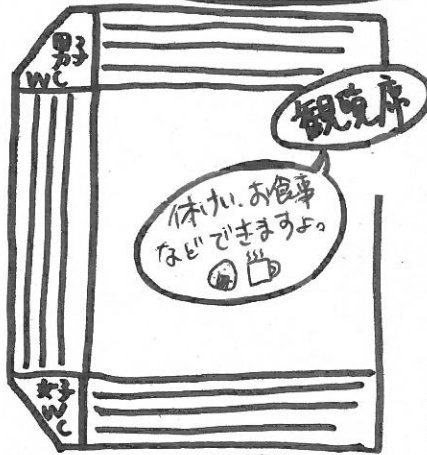 男子
WC
観覧席
休けい、お食事
などできますよ。
女子
WC